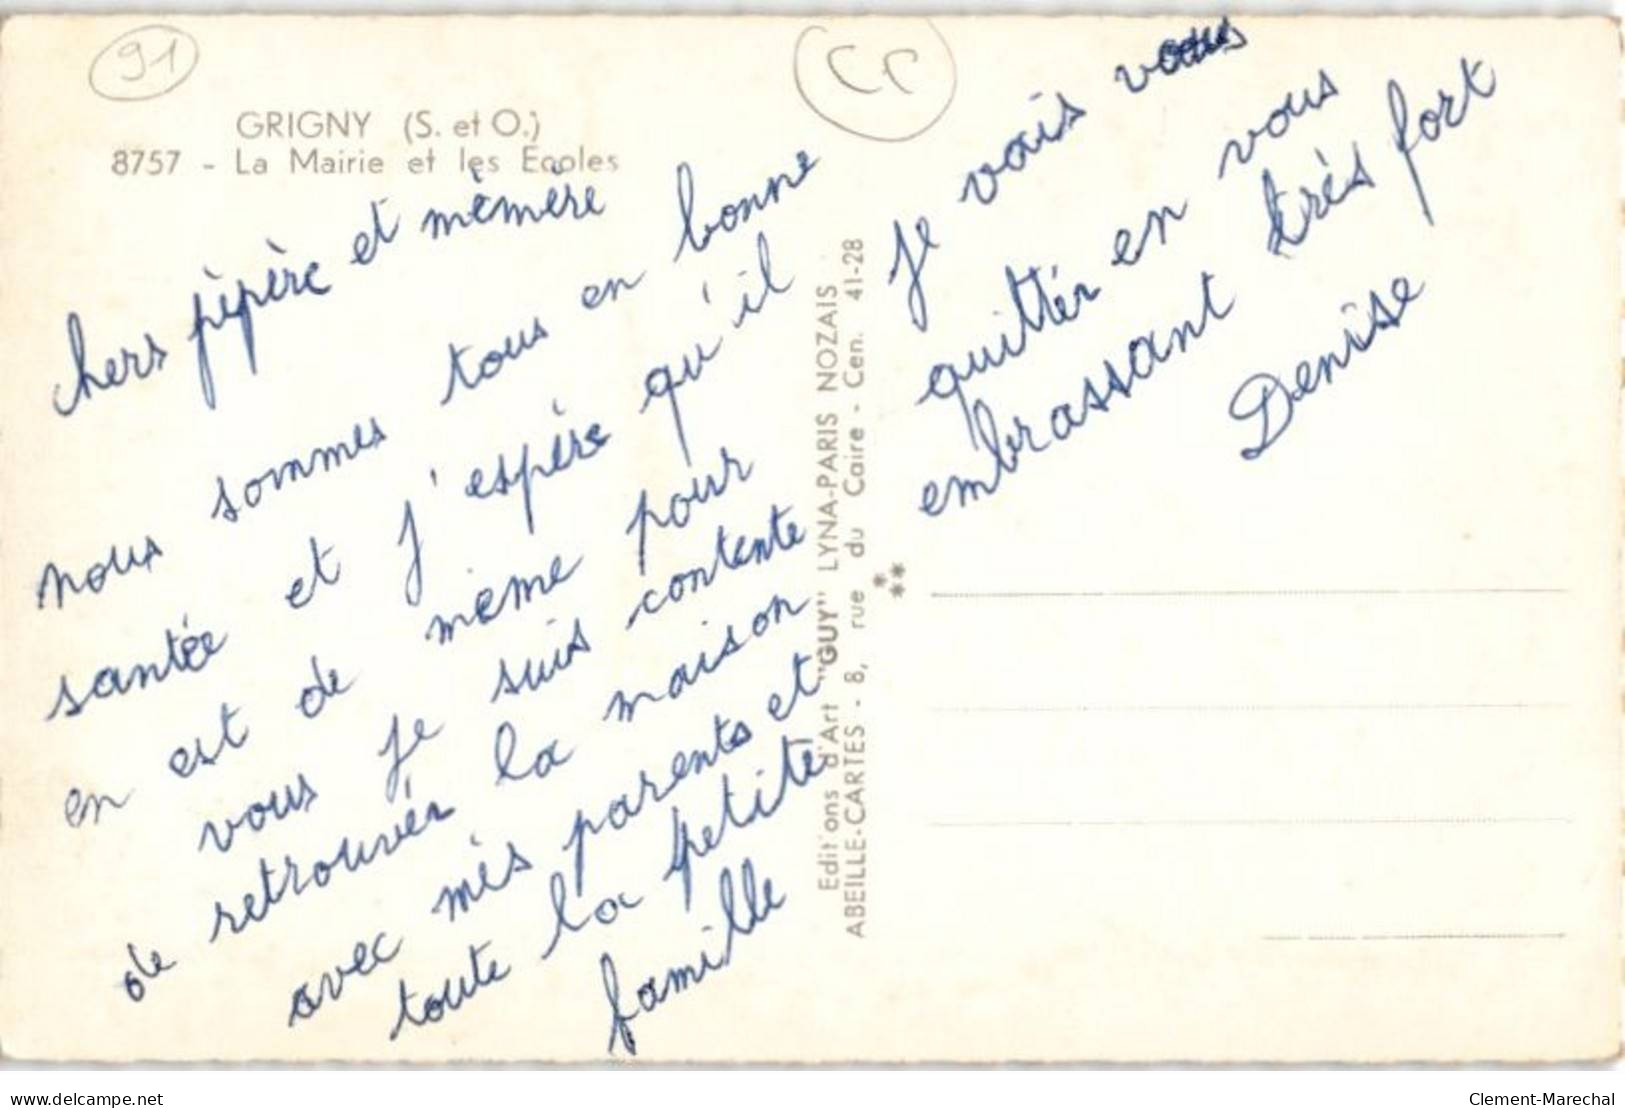 91
CC
GRIGNY (S. et O.)
8757 - La Mairie et les Ecoles
chers pèpère et mèmère
nous sommes tous en bonne
santée et j'espère qu'il
en est de même pour
vous je suis contente
de retrouvér la maison
avec mes parents et
toute la petite
famille
Je vais vous
quittér en vous
embrassant très fort
Denise
Edit'ons d'Art "GUY" LYNA-PARIS NOZAIS
ABEILLE-CARTES - 8, rue du Caire - Cen. 41-28
delcampe.net
Clement-Marechal